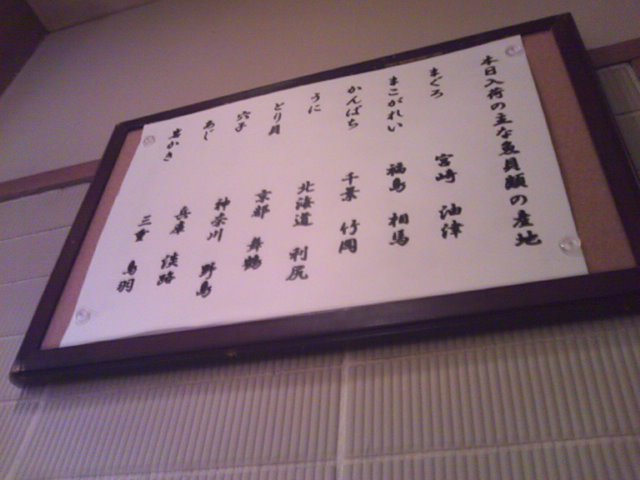 本日入荷の主な魚貝類の産地
まぐろ 宮崎 油津
まこがれい 福島 相馬
かんぱち 千葉 竹岡
うに 北海道 利尻
とり貝 京都 舞鶴
穴子 神奈川 野島
あじ 兵庫 淡路
岩かき 三重 鳥羽